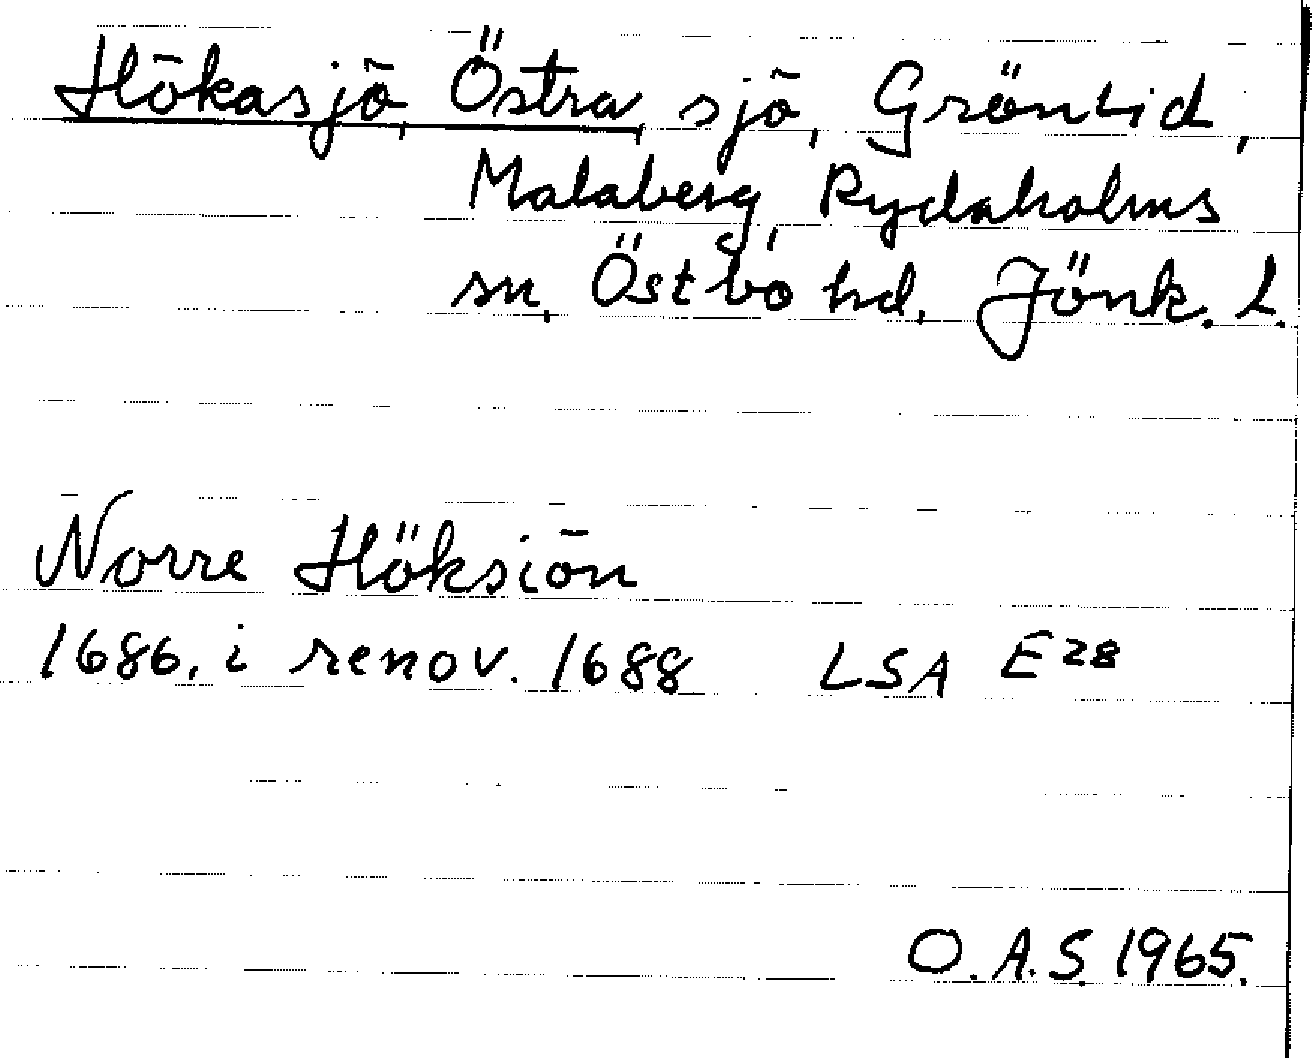 Hökasjö, Östra, sjö, Grönlid,
Malaberg, Rydaholms
sn, Östbo hd, Jönk. L.
Norre Höksiön
1686, i renov. 1688 LSA E28
O.A.S. 1965.